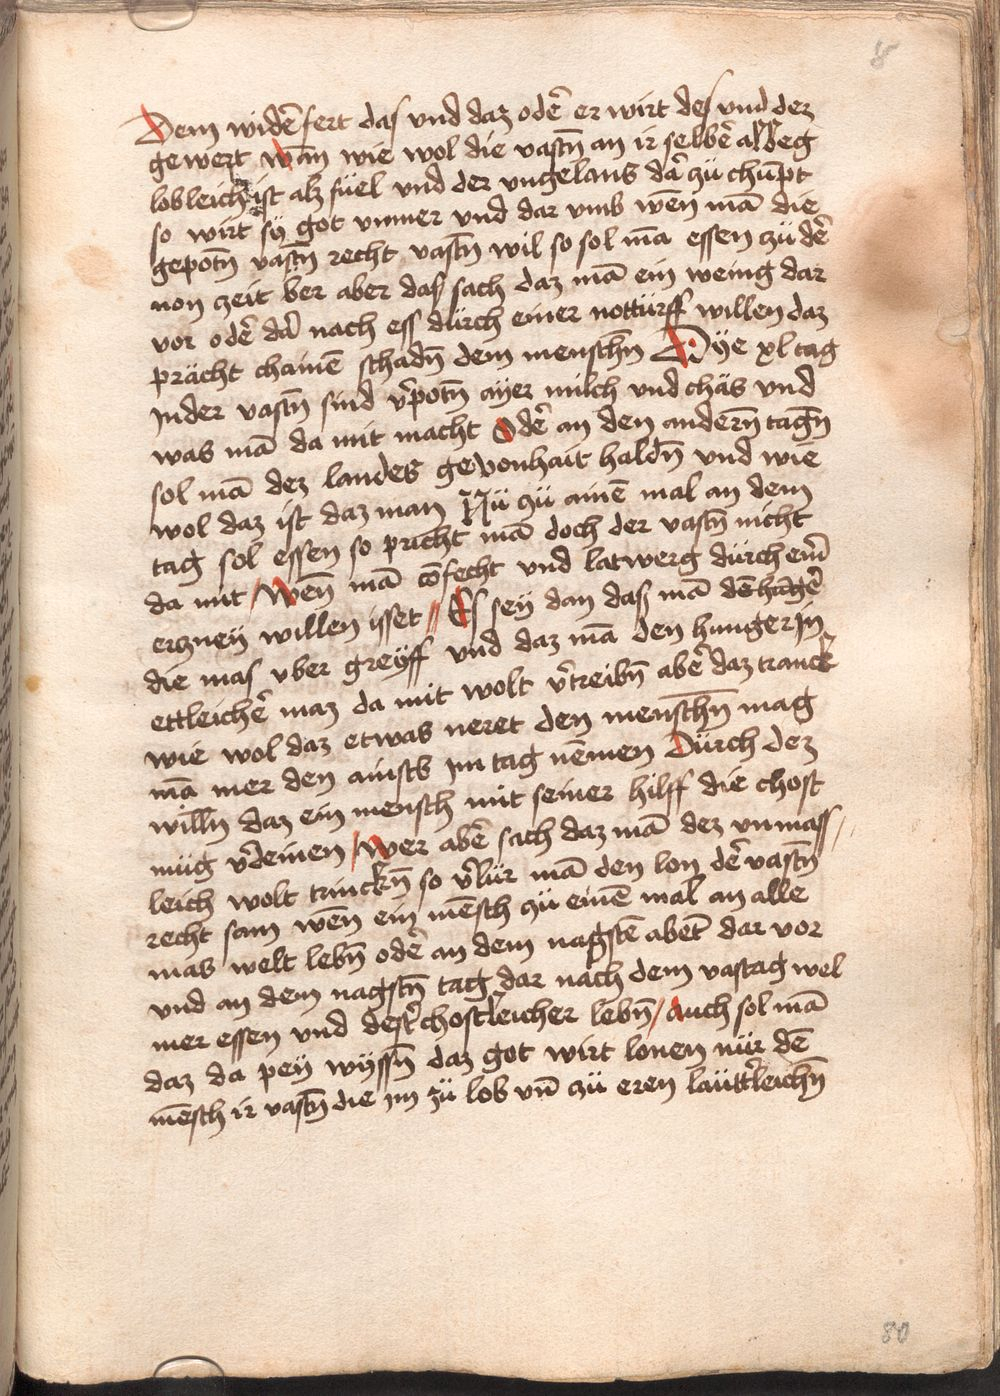 8
Dem widēfert das vnd daz odē er wirt des vnd dez
gewert wān wie wol die vastn̄ an ir selbē allbeg
lobleich ist alz fůel vnd der vngelaus dā zü chūpt
so wirt sÿ got vnmer vnd dar vmb wen̄ mā die
gepotn̄ vastn̄ recht vastn̄ wil so sol mā essen zü dē
non zeit ber aber das sach daz mā ein wenig dar
vor odē dā nach ess dürch einer nottürff willen daz
prächt chainē schadn̄ dem menschn̄ Dye xl tag
Inder vastn̄ sind v̄potn̄ ayer milch vnd chäs vnd
was mā da mit macht Odē an den andern̄ tagn̄
sol mā dez landes gevonhait haldn̄ vnd wie
wol daz ist daz man Nü zü ainē mal an dem
tag sol essen so pricht mā doch der vastn̄ nicht
da mit / Wen̄ mā cōfecht vnd latwerg dürch ein̄
erczneÿ willen isset // Es seÿ dan das mā
die mas vber greÿff vnd daz mā den hunger in
ettleichē maz da mit wolt v̄treibn̄ abē daz tranck
wie wol daz etwas neret den menschn̄ mag
mā mer den ainsts im tag nēmen Dürch dez
willn̄ daz ein mensch mit seiner hilff die chost
müg v̄deinen / Wer abē sach daz mā dez vnmass /
leich wolt trinckn̄ so v̄lür mā den lon dē vastn̄
recht sam wen̄ ein mēsch zü einē mal an alle
mas welt lebn̄ odē an dem nagstē abēt dar vor
vnd an dem nagstn̄ tag dar nach dem vastag wel
mer essen vnd dest̄ chostleicher lebn̄ / Auch sol mā
daz da peÿ wÿssn̄ daz got wirt lonen nür dē
mēsch ir vastn̄ die im zü lob vn̄ zü eren laütt̄leichn̄
80